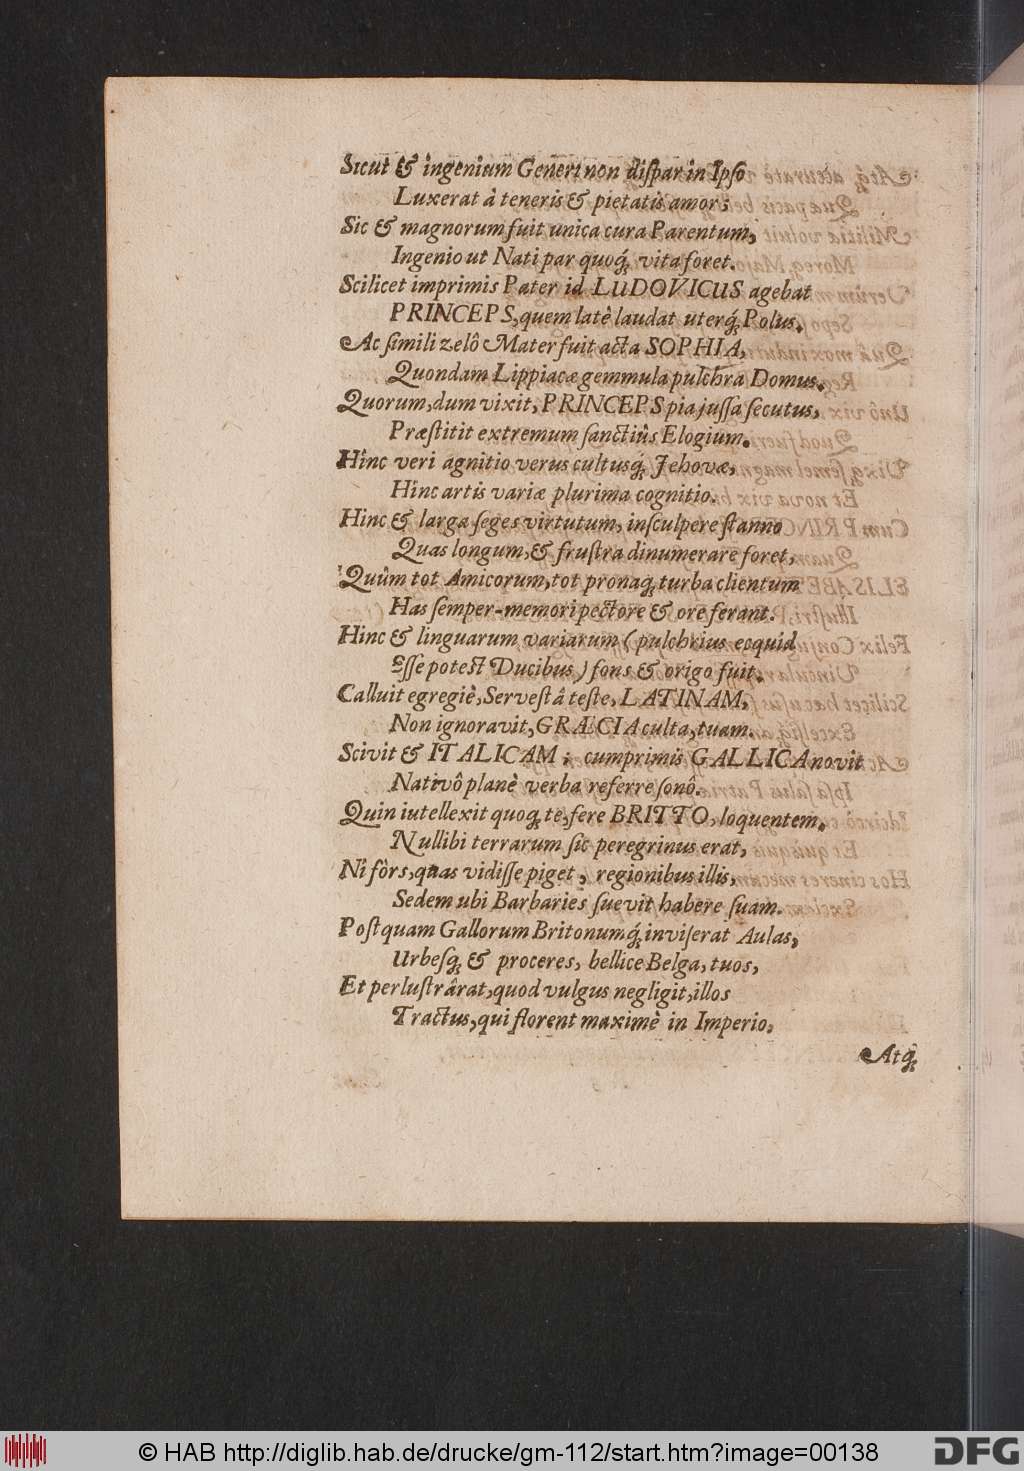 Sicut & ingenium Generi non diſpar in Ipſo
Luxerat à teneris & pietatis amor;
Sic & magnorum fuit unica cura Parentum,
Ingenio ut Nati par quoq́; vita foret.
Scilicet imprimis Pater id LUDOVICUS agebat
PRINCEPS, quem latè laudat uterq́; Polus.
Ac ſimili zelô Mater fuit acta SOPHIA,
Quondam Lippiacæ gemmula pulchra Domus.
Quorum, dum vixit, PRINCEPS pia juſſa ſecutus,
Præſtitit extremum ſanctiûs Elogium.
Hinc veri agnitio verus cultusq́; Jehovæ,
Hinc artis variæ plurima cognitio.
Hinc & larga ſeges virtutum, inſculpere ſtanno
Quas longum, & fruſtra dinumerare foret,
Quûm tot Amicorum, tot pronaq́; turba clientum
Has ſemper-memori pectore & ore ferant.
Hinc & linguarum variarum (pulchrius ecquid
Eſſe poteſt Ducibus) fons & origo fuit.
Calluit egregiè, Serveſtâ teſte, LATINAM,
Non ignoravit, GRÆCIA culta, tuam.
Scivit & ITALICAM; cumprimis GALLICA novit
Nativô planè verba referre ſonô.
Quin iutellexit quoq́; te, fere BRITTO, loquentem.
Nullibi terrarum ſic peregrinus erat,
Ni fôrs, quas vidiſſe piget, regionibus illis,
Sedem ubi Barbaries ſuevit habere ſuam.
Poſtquam Gallorum Britonumq́; inviſerat Aulas,
Urbeſq́; & proceres, bellice Belga, tuos,
Et perluſtrârat, quod vulgus negligit, illos
Tractus, qui florent maximè in Imperio.
Atq́;
© HAB http://diglib.hab.de/drucke/gm-112/start.htm?image=00138
DFG